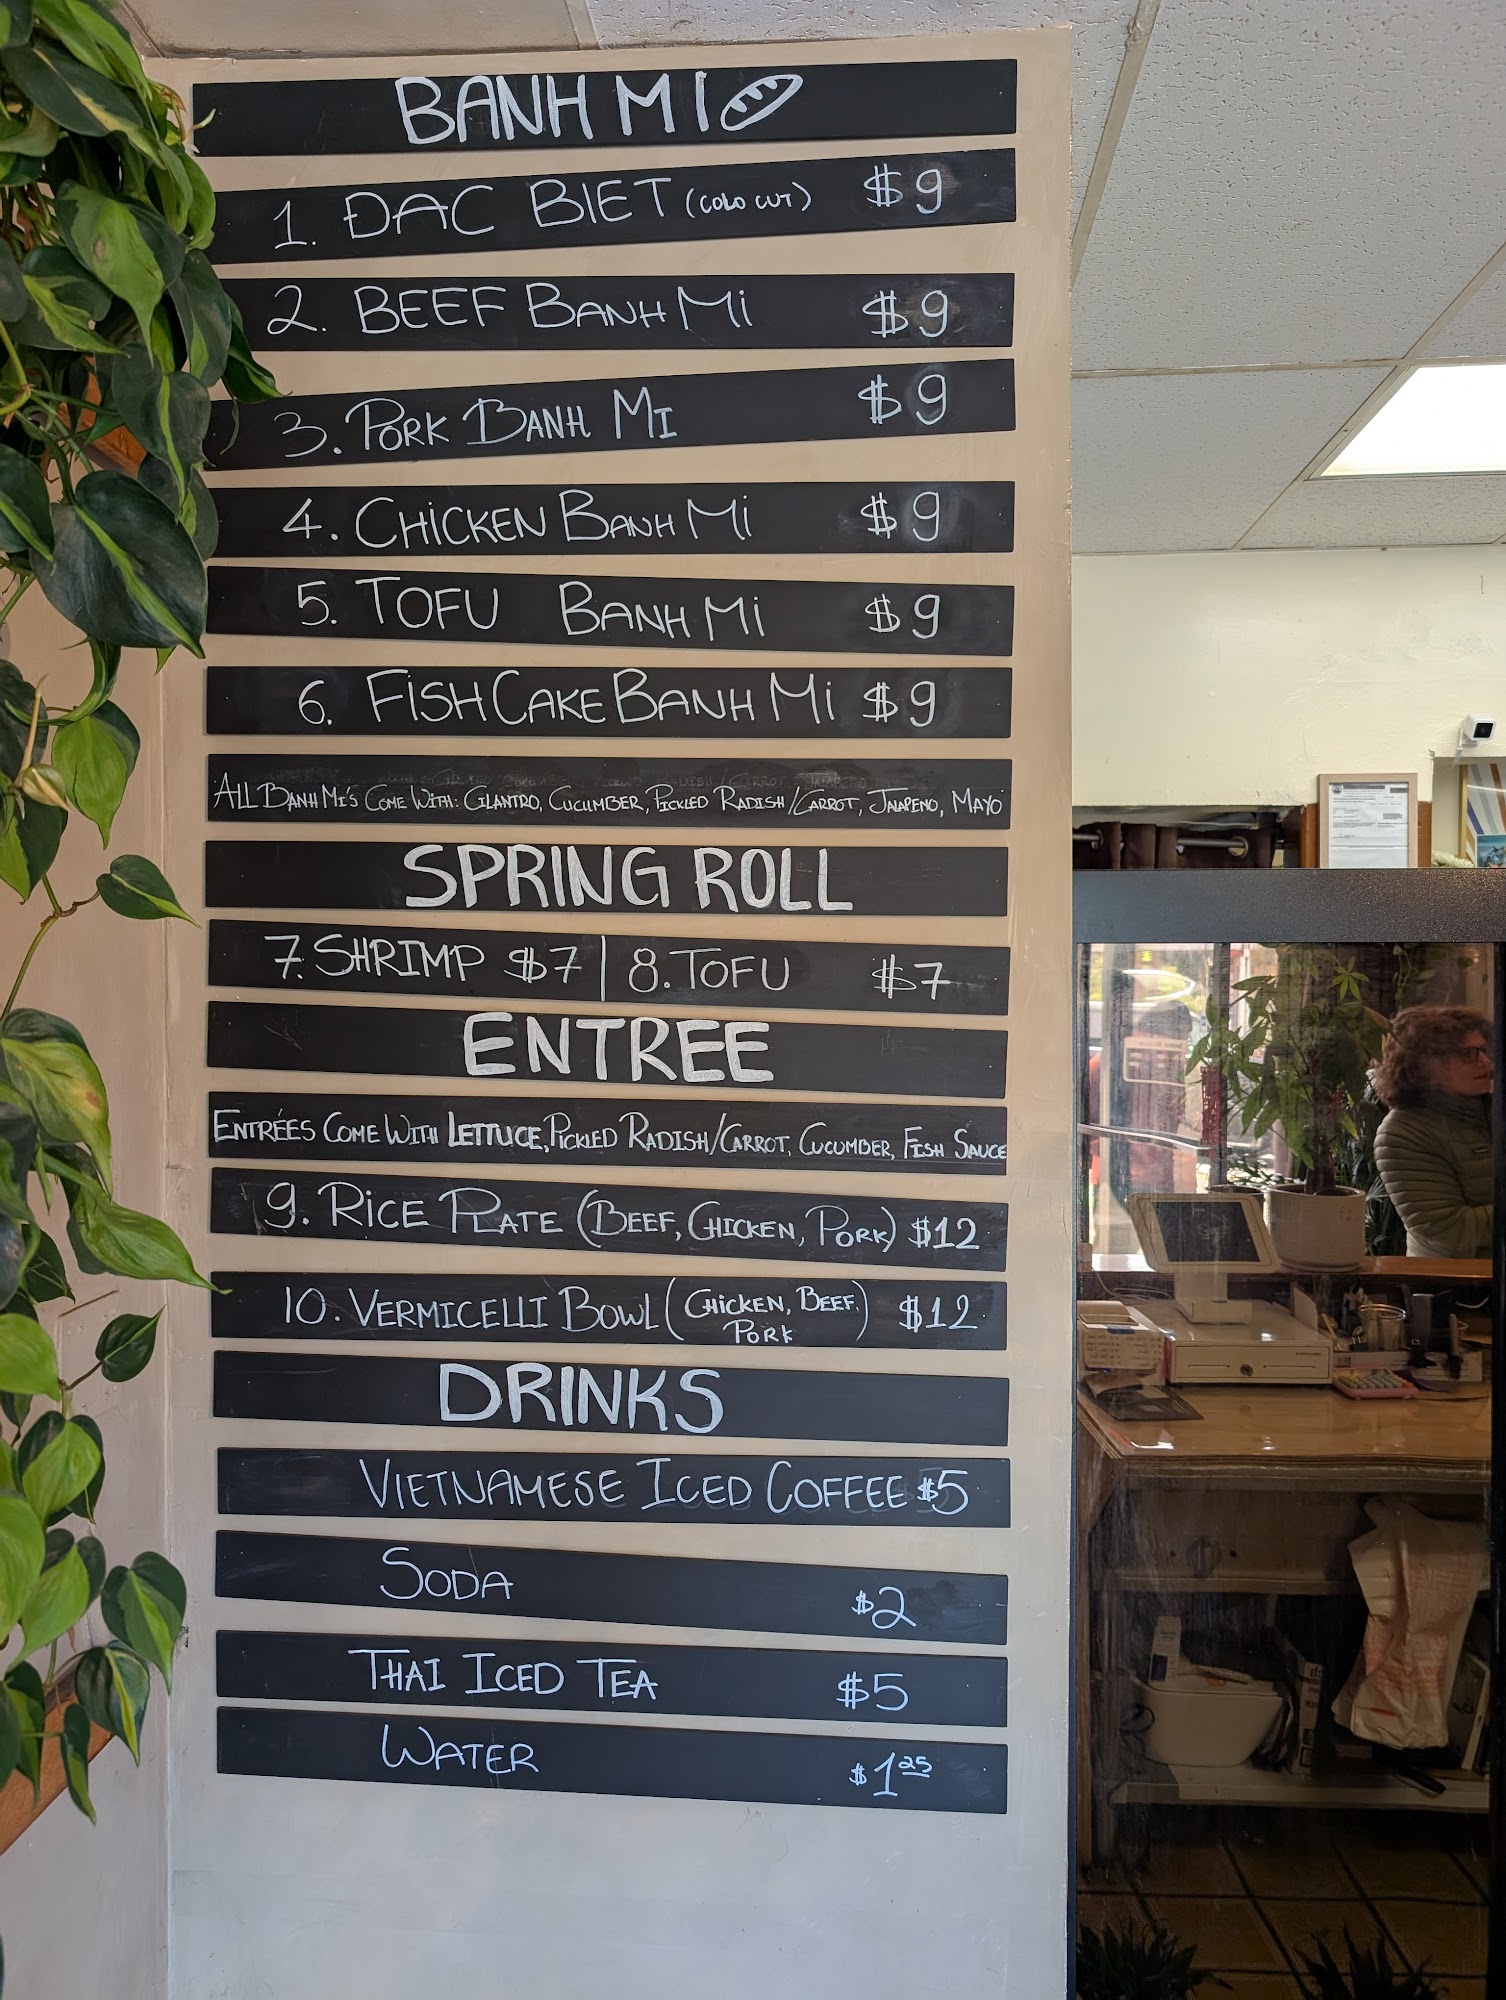 BANH MI
1. ĐAC BIET (COLD CUT) $9
2. BEEF BANH Mi $9
3. PORK BANH MI $9
4. CHiCKEN BANH Mi $9
5. TOFU BANH Mi $9
6. FiSH CAKE BANH Mi $9
ALL BANH MI'S COME WITH: CILANTRO, CUCUMBER, PICKLED RADISH/CARROT, JALAPENO, MAYO
SPRING ROLL
7. SHRIMP $7 | 8. TOFU $7
ENTREE
ENTRÉES COME WITH LETTUCE, PICKLED RADISH/CARROT, CUCUMBER, FISH SAUCE
9. RICE PLATE (BEEF, CHICKEN, PORK) $12
10. VERMICELLI BOWL (CHiCKEN, BEEF, PORK) $12
DRINKS
VIETNAMESE ICED COFFEE $5
SODA $2
THAI ICED TEA $5
WATER $1.25